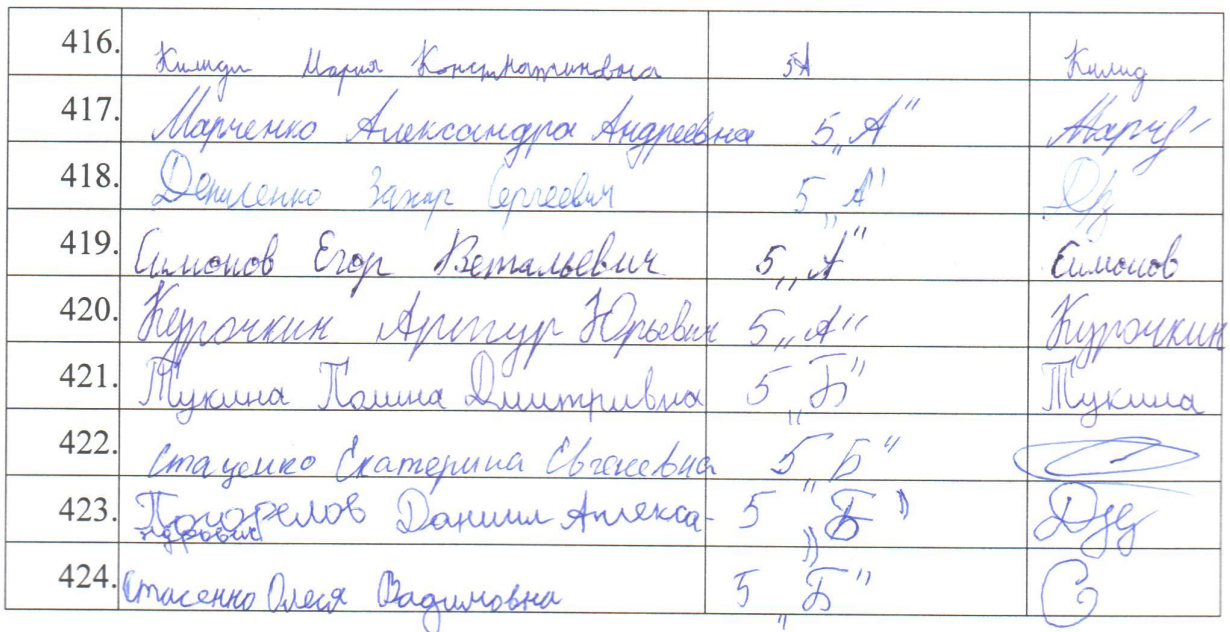 416. Килиди Мария Константиновна 5А Килид
417. Марченко Александра Андреевна 5 „А" Марч
418. Дениленко Захар Сергеевич 5 „А"
419. Симонов Егор Ветальевич 5 „А" Симонов
420. Курочкин Артур Юрьевич 5 „А" Курочкин
421. Тукина Полина Дмитривна 5 „Б" Тукина
422. Стаценко Екатерина Евгеневна 5 „Б"
423. Погорелов Даниил Алекса- 5 „Б"
ндрович
424. Стасенко Олеся Вадимовна 5 „Б" С